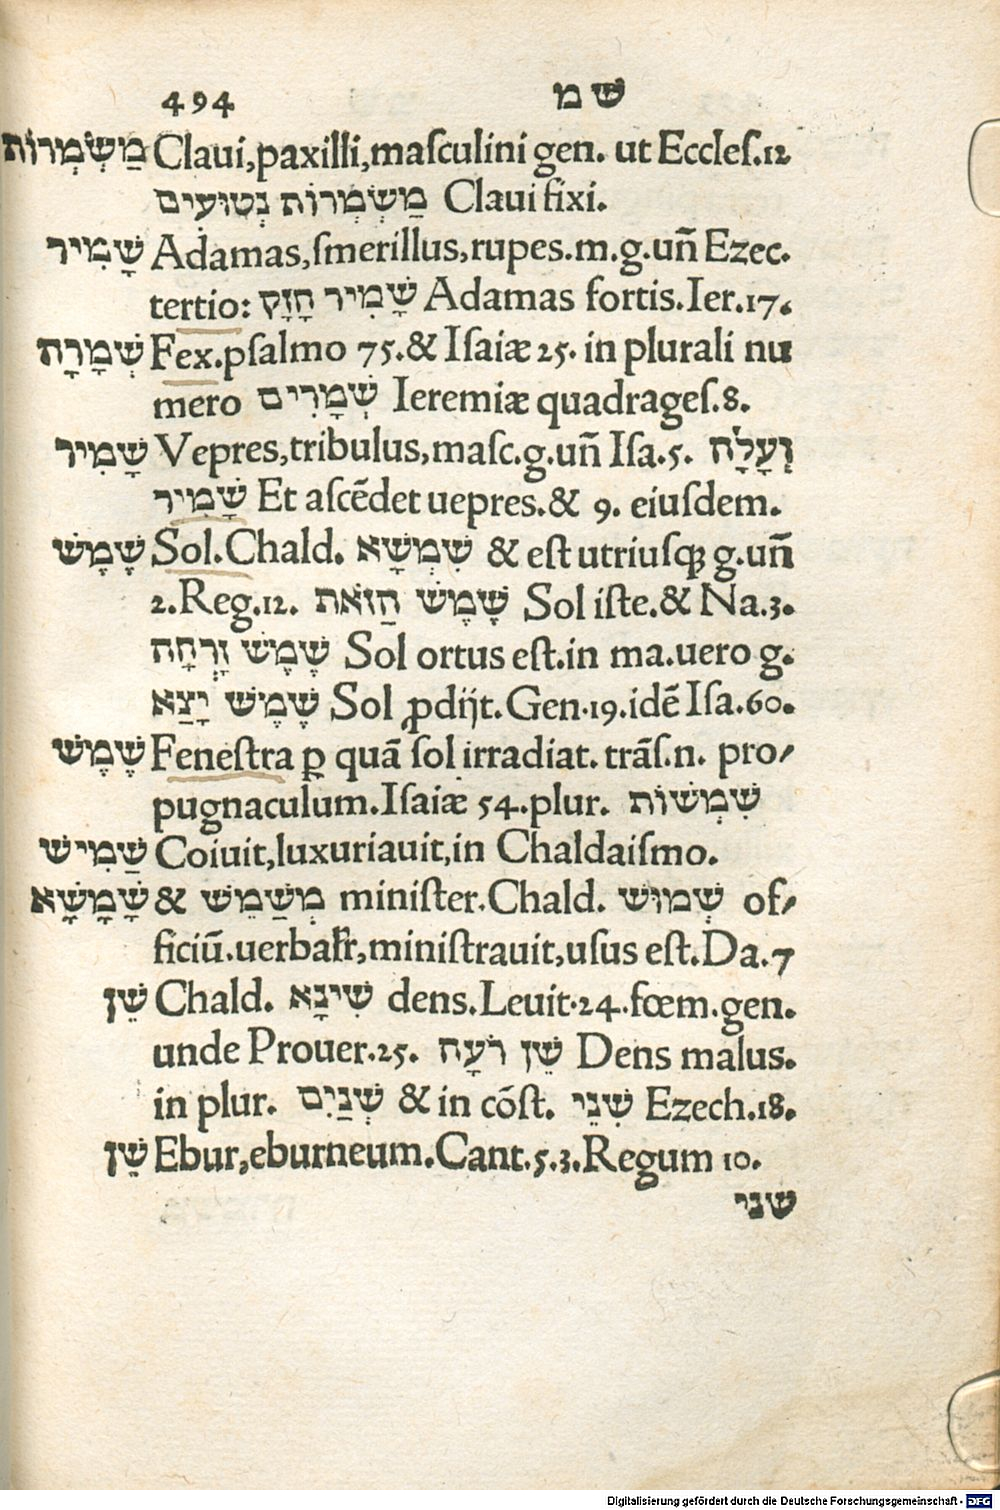 494 שמ
מַשְׂמְרוֹת Claui,paxilli,maſculini gen. ut Eccleſ.12
מַשְׂמְרוֹת נְטוּעִים Claui fixi.
שָׁמִיר Adamas,ſmerillus,rupes.m.g.uñ Ezec.
tertio: שָׁמִיר חָזָק Adamas fortis.Ier.17.
שְׁמָרָה Fex.pſalmo 75.& Iſaiæ 25. in plurali nu
mero שְׁמָרִים Ieremiæ quadrageſ.8.
שָׁמִיר Vepres,tribulus,maſc.g.uñ Iſa.5. וְעָלָה
שָׁמִיר Et aſcēdet uepres.& 9. eiuſdem.
שֶׁמֶשׁ Sol.Chald. שִׁמְשָׁא & eſt utriuſqꝫ g.uñ
2.Reg.12. שֶׁמֶשׁ הַזֹּאת Sol iſte.& Na.3.
שֶׁמֶשׁ זָרְחָה Sol ortus eſt.in ma.uero g.
שֶׁמֶשׁ יָצַא Sol ꝓdijt.Gen.19.idē Iſa.60.
שֶׁמֶשׁ Feneſtra ꝑ quā ſol irradiat. trāſ.n. pro/
pugnaculum.Iſaiæ 54.plur. שִׁמְשׁוֹת
שַׁמִישׁ Coiuit,luxuriauit,in Chaldaiſmo.
שָׁמָשָׁא & מְשַׁמֵשׁ miniſter.Chald. שְׁמוּשׁ of/
ficiū.uerbalr,miniſtrauit,uſus eſt.Da.7
שֵׁן Chald. שִׁינָא dens.Leuit.24.fœm.gen.
unde Prouer.25. שֵׁן רֹעָה Dens malus.
in plur. שְׁנַיִם & in cōſt. שִׁנֵי Ezech.18.
שֵׁן Ebur,eburneum.Cant.5.3.Regum 10.
שני
Digitalisierung gefördert durch die Deutsche Forschungsgemeinschaft - DFG